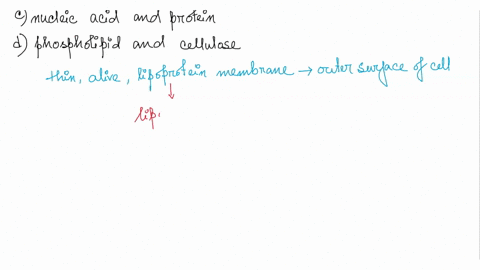 c) nucleic acid and protein
d) phospholipid and cellulase
thin, alive, lipoprotein membrane → outer surface of cell
↓
lip